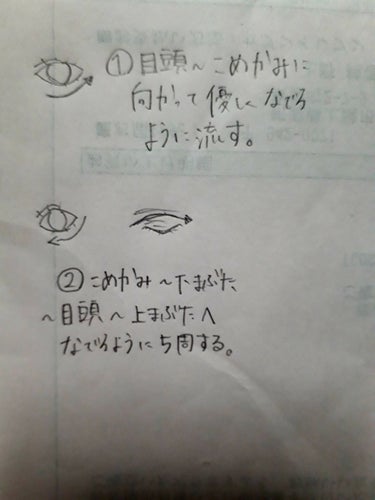 ①目頭～こめかみに
向かって優しくなでる
ように流す。
②こめかみ～下まぶた
～目頭～上まぶたへ
なでるように5周する。